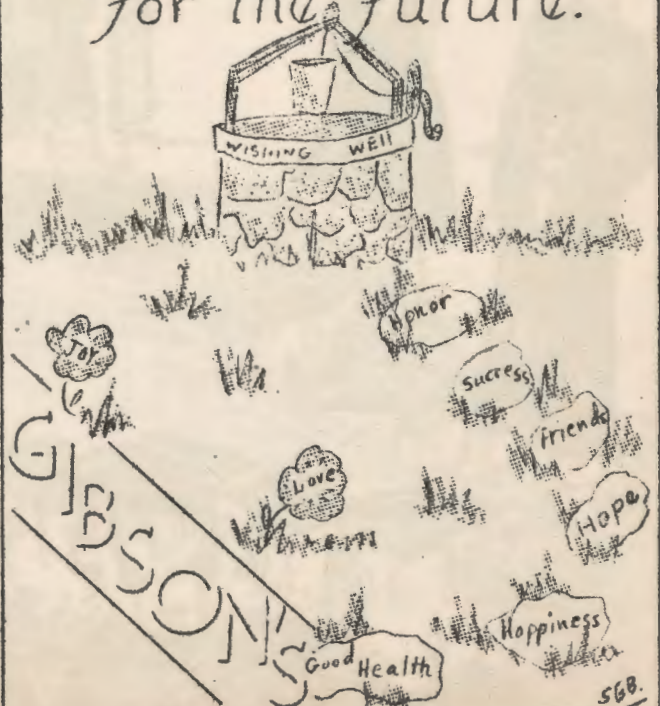 for the future.
WISHING WELL
Honor
Joy
Success
Friends
Love
Hope
GIBSON'S
Happiness
Good Health
SGB.